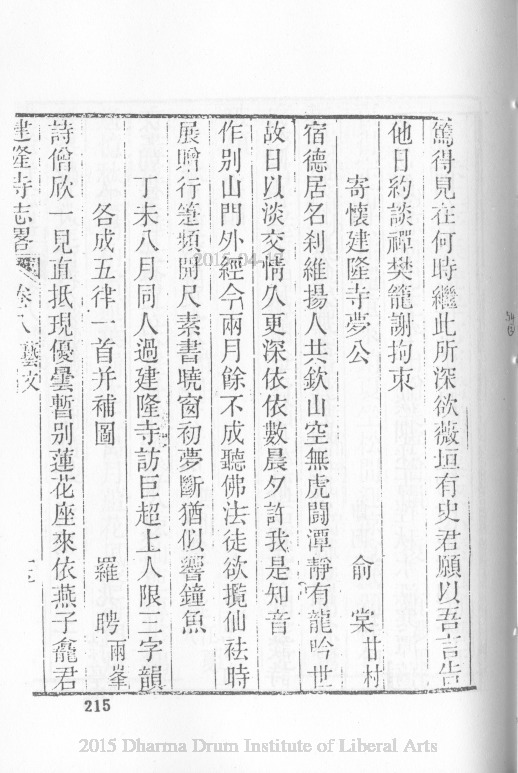 篤得見在何時繼此所深欲薇垣有史君願以吾言告
他日約談禪樊籠謝拘束
寄懷建隆寺夢公　俞棠甘村
宿德居名刹維揚人共欽山空無虎鬪潭靜有龍吟世
故日以淡交情久更深依依數晨夕許我是知音
作別山門外經今兩月餘不成聽佛法徒欲攬仙袪時
展贈行箑頻開尺素書曉窗初夢斷猶似響鐘魚
丁未八月同人過建隆寺訪巨超上人限三字韻
各成五律一首并補圖　羅聘兩峯
詩僧欣一見直抵現優曇暫別蓮花座來依燕子龕君
建隆寺志畧卷八藝文
215
2015 Dharma Drum Institute of Liberal Arts